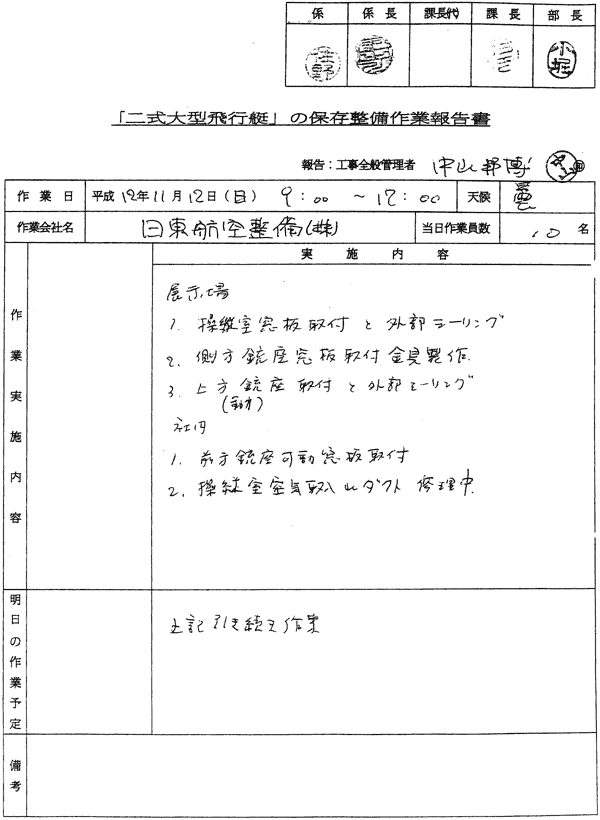 係 係長 課長(代) 課長 部長
小堀
「二式大型飛行艇」の保存整備作業報告書
報告:工事全般管理者 中山邦博
作業日 平成12年11月12日(日) 9:00 ～17:00 天候 曇
作業会社名 日東航空整備(株) 当日作業員数 10名
作業実施内容
実施内容
展示場
1. 操縦室窓板取付と外部シーリング
2. 側方銃座窓板取付金具製作.
3. 上方銃座取付と外部シーリング
社内
1. 前方銃座可動窓板取付
2. 操縦室空気取入レダクト修理中.
明日の作業予定
上記引き続き作業
備考